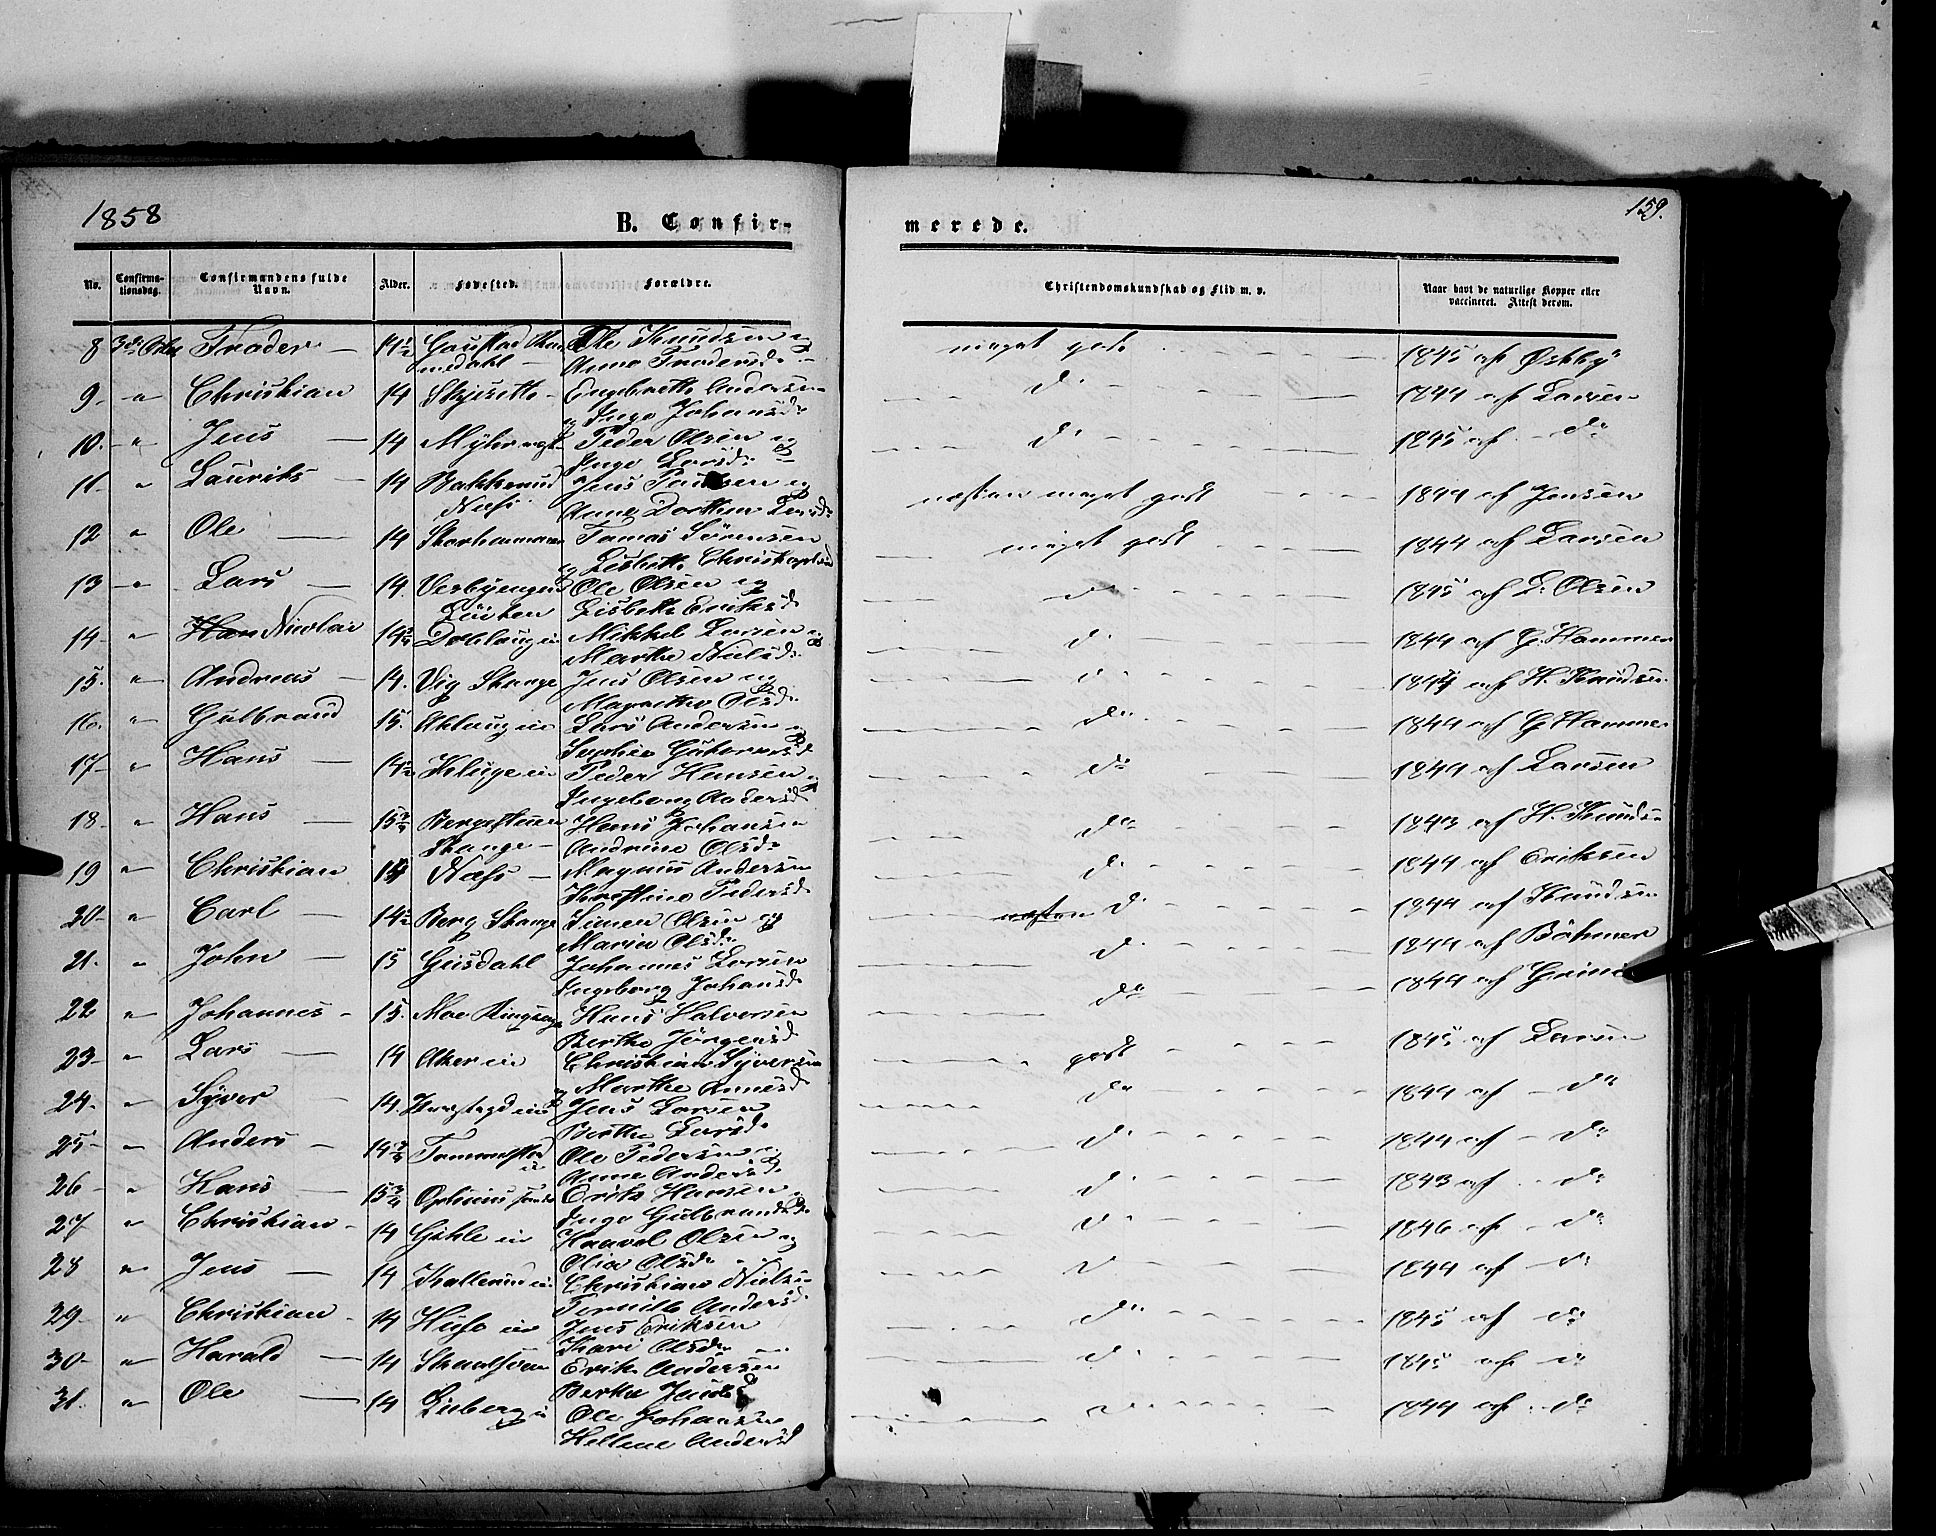 1858
B. Confir-
merede.
159.
No.
Confirma-
tionsdag.
Confirmandens fulde
Navn.
Alder.
Fødested.
Forældre.
Christendomskundskab og Flid m. v.
Naar havt de naturlige Kopper eller
vaccineret. Attest derom.
8 3die Octbr Ole Knudsen og
meget godt 1845 af Østby
9 " Christian 14 Engebrethe Andersen
og Inge Johansd. d. 1844 af Larsen
10. " Jens 14 Peder Olsen og
Inge Larsd. d. 1845 af do
11. " Laurits 14 Bakkerud Jens Paulsen og
Næss Anne Dorthea Larsd. næsten meget godt 1844 af Jensen
12 " Ole 14 Storhammeren Tomas Sörensen
og Lisbeth Christophersd meget godt 1844 af Larsen
13 " Lars 14. Ole Olsen og
Lisbeth Eriksd. do 1845 af L. Olsen
14 " Han Nicolai Mikkel Larsen og
Marthe Nielsd. d. 1844 af G. Hammer
15. " Andreas 14. Vig Stange Jens Olsen og
Magrethe Olsd. d. 1844 af H. Knudsen
16. " Gulbrand 15. Lars Andersen og
Sophie do 1844 af G. Hammer
17 " Hans 14½ Peder Hansen og
Ingeborg Andersd do 1844 af Larsen
18. " Hans 15¾ Hans Johansen
Stange Andrine Olsd. do 1843 af H. Knudsen
19 " Christian Næss Magnus Andersen
Kirstine Pedersd. d. 1844 af Eriksen
20 " Carl 14½ Berg Stange Simen Olsen og
Maria Olsd. næsten d. 1844 af Knudsen
21. " John 15 Johannes Larsen
Ingeborg Johansd d. 1844 af Böhmer
22 " Johannes 15. Moe Ringsager Hans Halvorsen
Berthe Jörgensd do 1844 af
23 " Lars 14 Aker ie Christian Syversen
og Marthe godt 1845 af Larsen
24. " Syver 14. Jens Larsen
Berthe Larsd. do 1844 af do
25 " Anders 14¾ Tommelstad Ole Pedersen og
Anne Andersd. d. 1844 af do
26 " Hans 15¾ Erik Hansen og
Inge Gulbrandsd. d. 1843 af do
27 " Christian 14 Haavel Olsen og
Olia Olsd. d. 1846 af do
28 " Jens 14 Christian Nielsen
Andersd. d 1844 af do
29 " Christian 14 Jens Eriksen
Kari Olsd. do 1845 af do
30 " Harald 14 Erik Andersen
Berthe d. 1845 af do
31. " Ole 14 Ole Johansen
Hellene Andersd 1844 af do